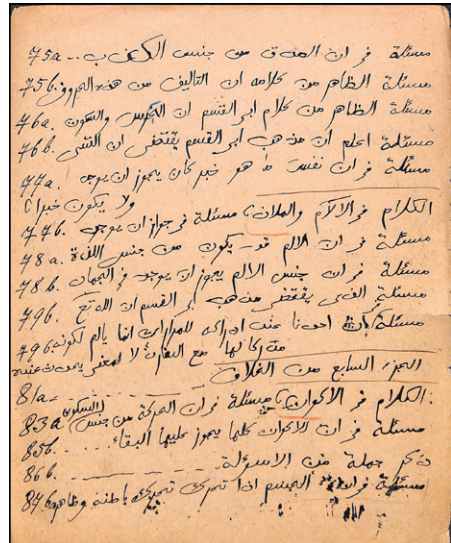 مسئلة في ان الصدق من جنس الكذب .. 75a
مسئلة الظاهر من كلامه ان التاليف من هذه الحروف 75b.
مسئلة الظاهر من كلام ابى القسم ان والسكون 76a.
مسئلة اعلم ان مذهب ابى القسم يقتضى ان الشى 76b.
مسئلة فى ان نفس ما هو خبر كان يجوز ان يوجد 77a.
ولا يكون خبرا
الكلام فى الآلام والملاذ، مسئلة فى جواز ان يوجد 77b.
مسئلة فى ان الالم قد يكون من جنس اللذة 78a.
مسئلة فى ان جنس الالم يجوز ان يوجد فى الجماد 78b.
مسئلة الذى يقتضى مذهب ابى القسم ان الله تع 79b.
مسئلة احدنا عند ادراكه للمرارة انما يالم لكونه 79b
مدركا لها مع النفار لا لمعنى يحدث عنده
الجزء السابع من الخلاف
81a-
الكلام فى الاكوان، مسئلة فى ان الحركة من جنس السكون 83a
مسئلة فى ان الاكوان كلها يجوز عليها البقاء 85b.
ذكر جملة من الاسولة 86b.
مسئلة فى ان الجسم اذا تحرك تحرك باطنه وظاهره 87b